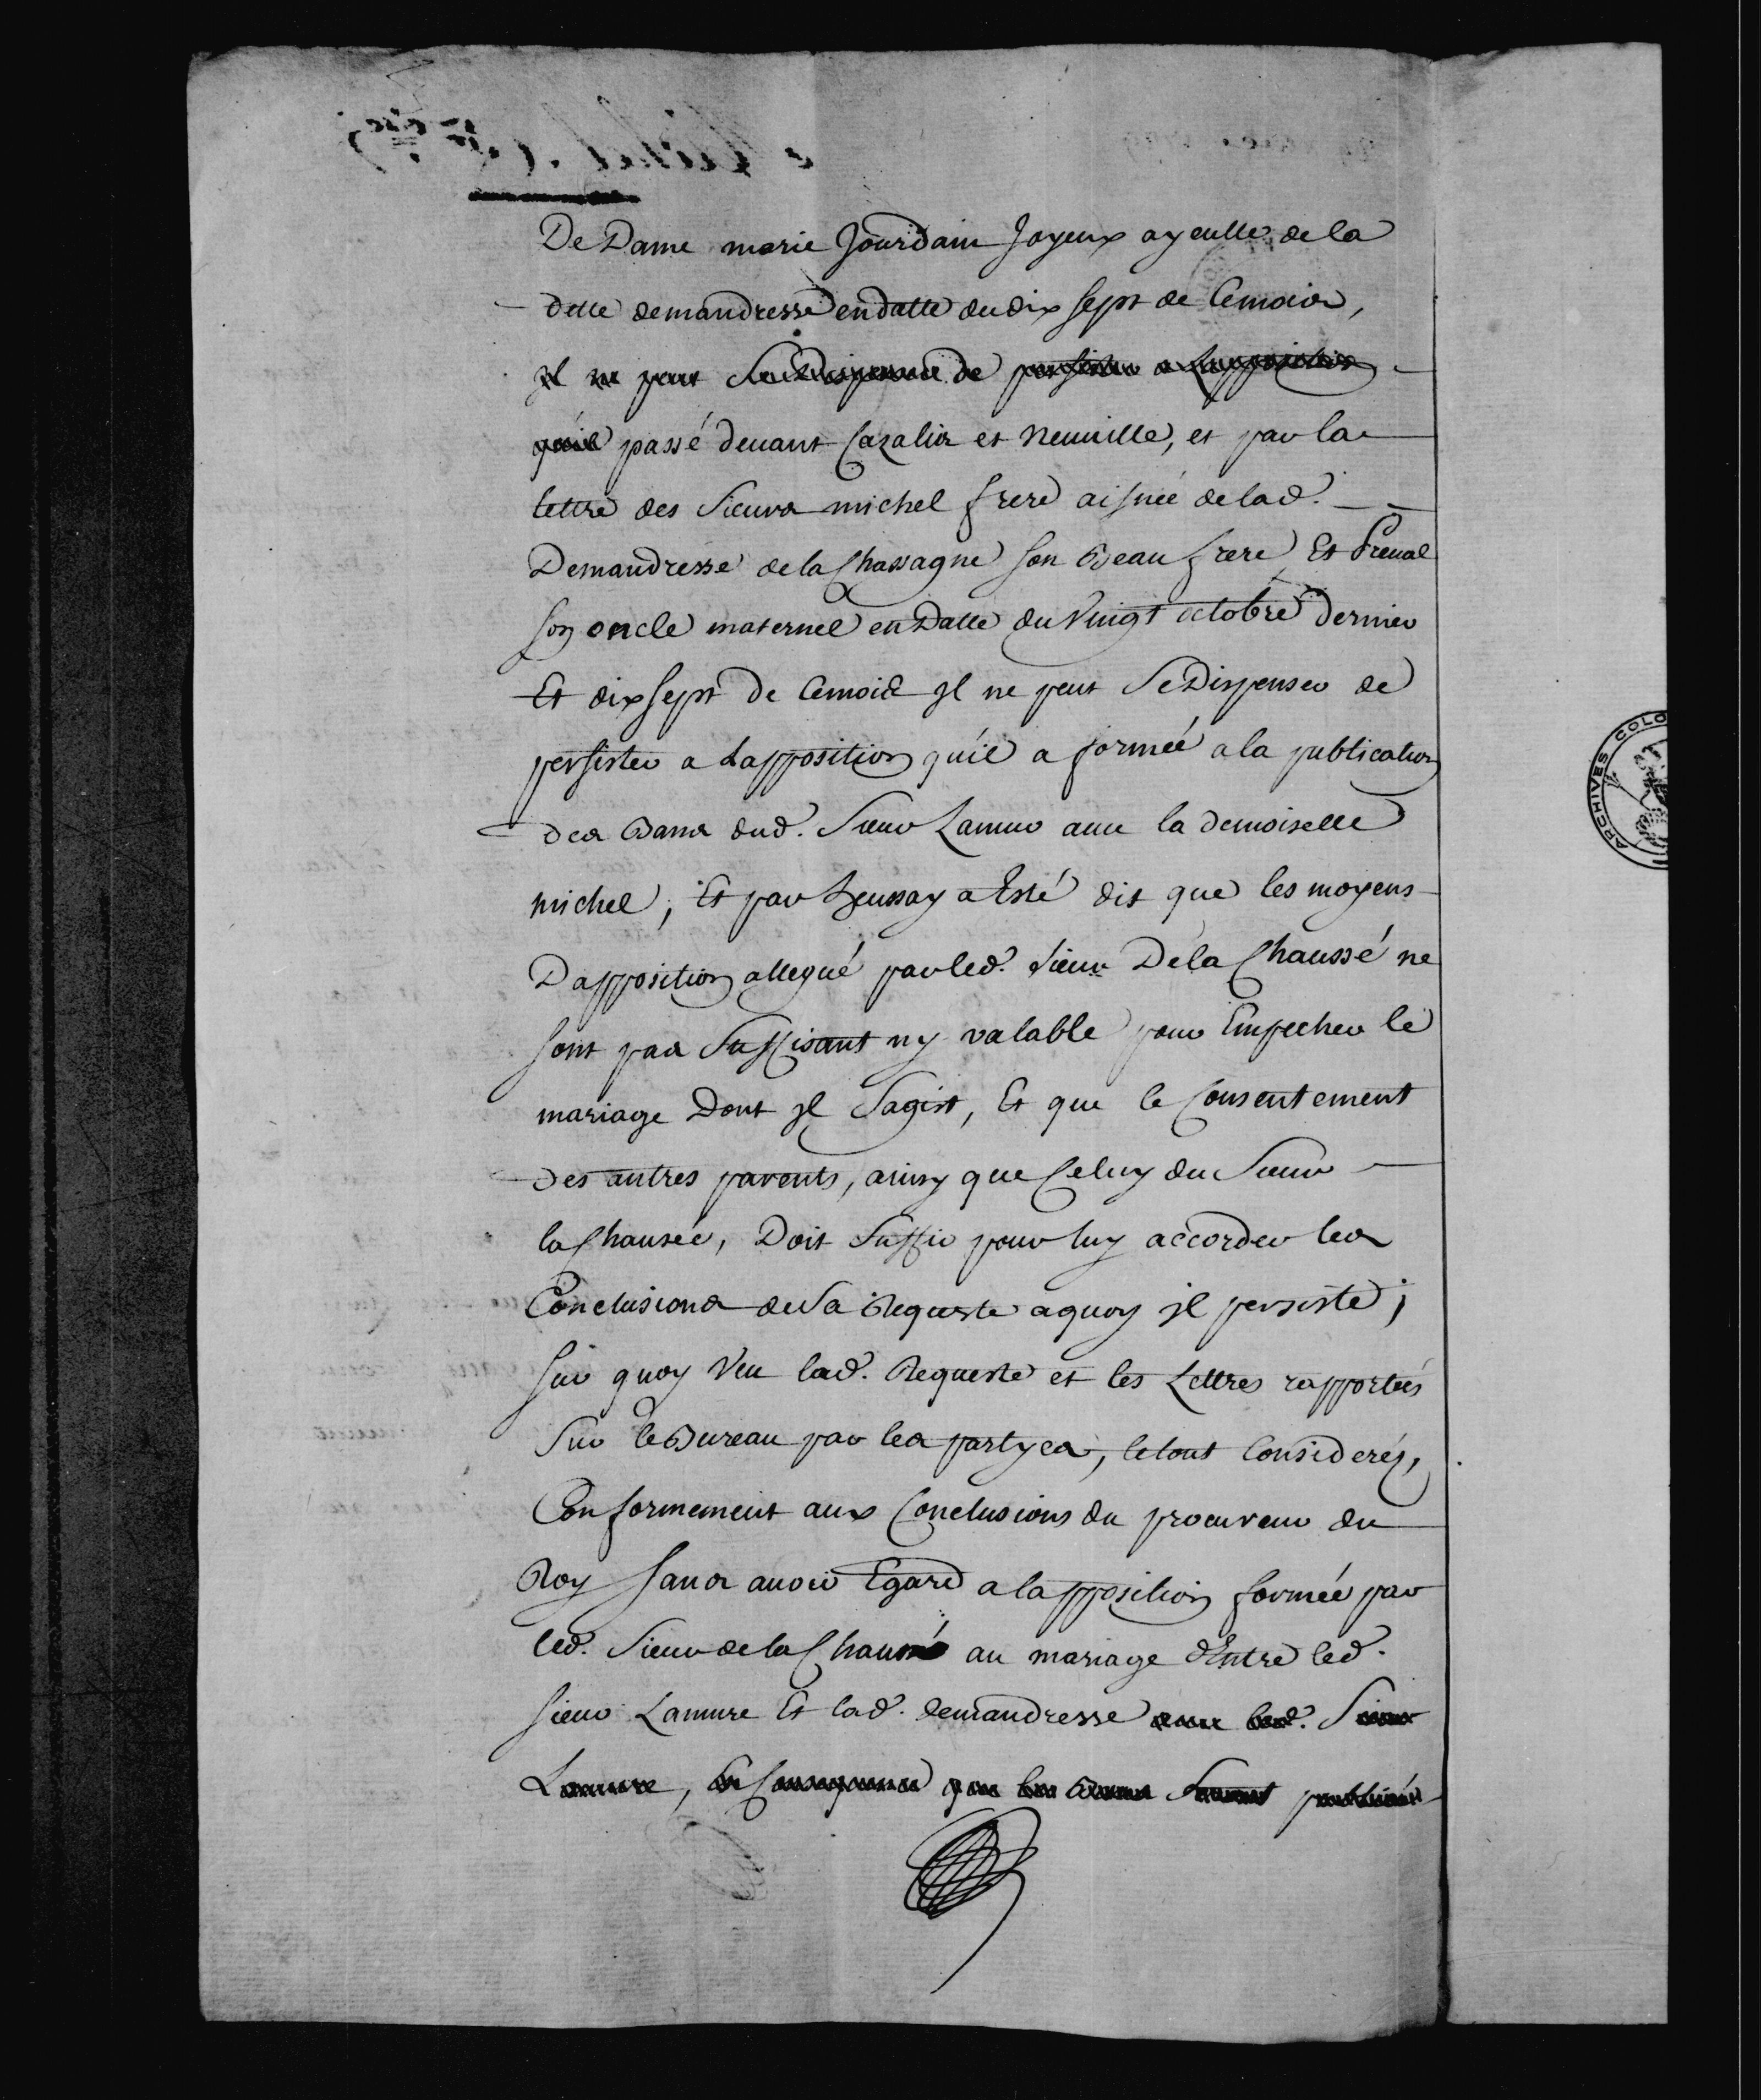 De Dame marie Jourdain Joyeux ayeulle de la
dette demandresse en datte du dix sept de Cemois,
Il ne peut Se Dispenser de persister a Lapposition
quil passé devant Cazalis et Neuville, et par la
lettre des Sieurs michel frere aisnée de lad.
Demandresse de la Chassagne son Beau frere, Et Preval
son oncle maternel en Datte du Vingt octobre dernier
Et dix sept de Cemois Il ne peut Se Dispenser de
persister a Lapposition qu'il a formée a la publication
des Bans dud. Sieur Lamur avec la demoiselle
michel; Et par a Esté dit que les moyens
Dapposition allegué par led. Sieur De la Chaussé ne
sont pas Suffisant ny valable pour Empecher le
mariage Dont Il Sagist, Et que le Consentement
des autres parents, ainsy que Celuy du Sieur
la Chausée, Doit Suffir pour luy accorder les
Conclusions de Sa Requeste a quoy il persiste;
sur quoy Veu lad. Requeste et les Lettres rapportées
Sur le Bureau par les partyes, le tout Considerés,
Conformement aux Conclusions du procureur du
Roy sans avoir Egard a lapposition formée par
led. Sieur de la Chaussé au mariage dEntre led.
sieur Lamure Et lad. demandresse avec led. Sieur
Lamure, En Consequence que les Bans Seront publiés
ARCHIVES COLO